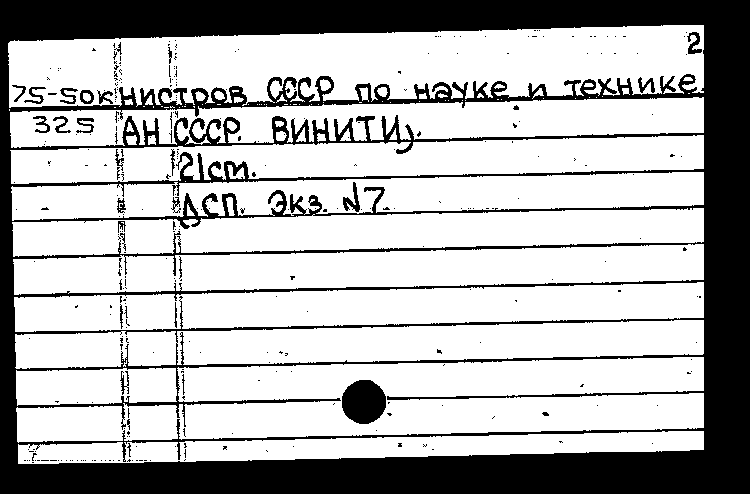 2
75-50к нистров СССР по науке и технике.
325 АН СССР. ВИНИТИ).
21см.
ДСП. Экз. №7.